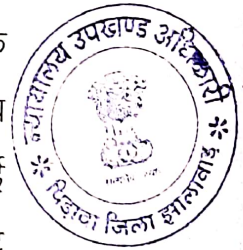 न्यायालय उपखण्ड अधिकारी
पिड़ावा जिला झालावाड़